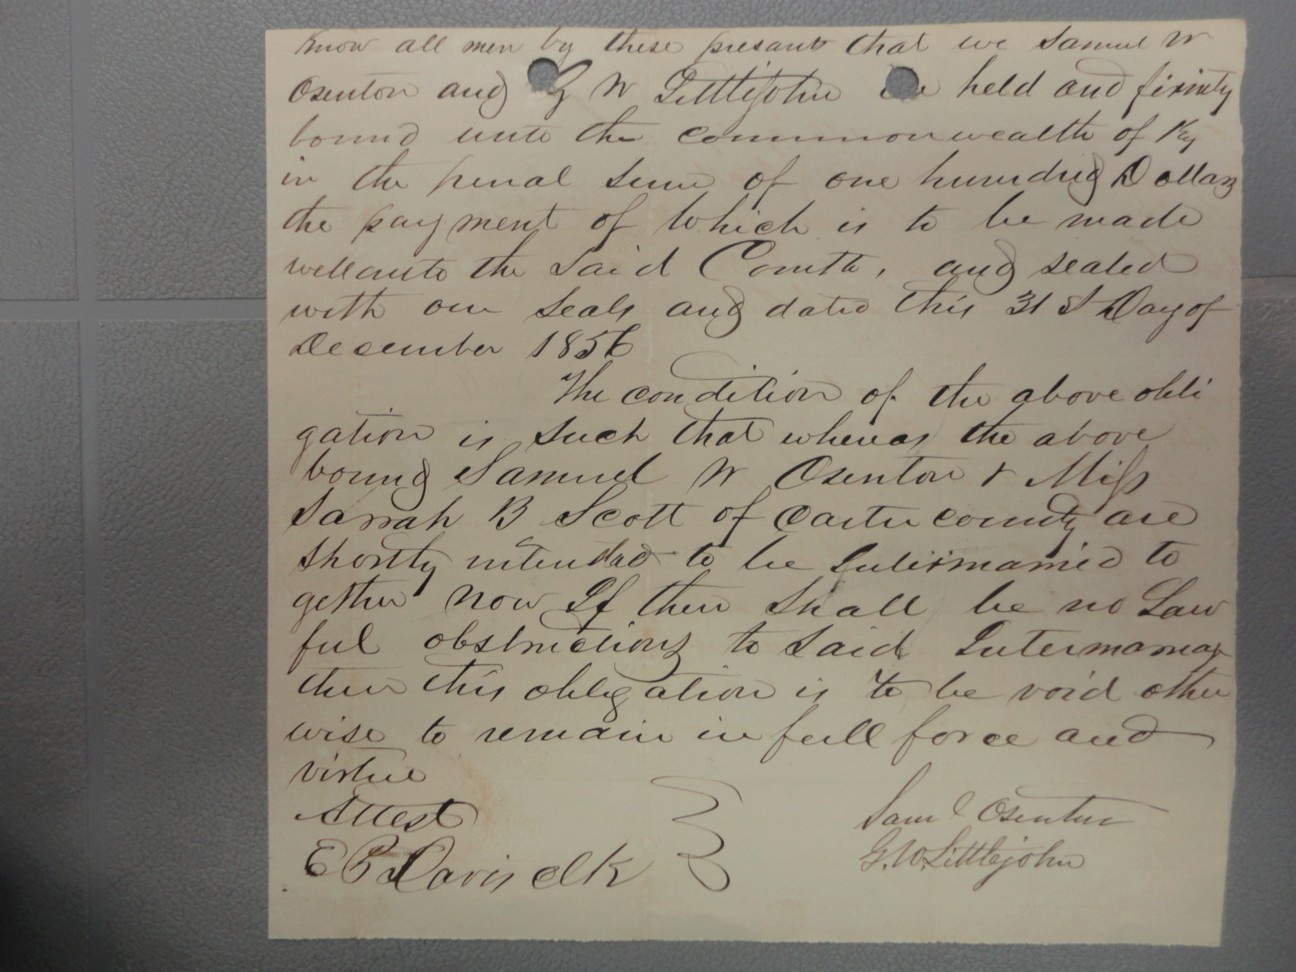 Know all men by these presants that we Samuel W
Osenton and G W Littlejohn are held and firmly
bound unto the commonwealth of Ky
in the penal sum of one hundred Dollars
the payment of which is to be made
well unto the said Comth, and sealed
with our seals and dated this 31 st Day of
December 1856
The condition of the above obli
gation is such that whereas the above
bound Samuel W Osenton & Miss
Sarrah B Scott of Carter county are
shortly intended to be Intermarried to
gether now If there shall be no Law
ful obstructions to said Intermarriage
then this obligation is to be void other
wise to remain in full force and
virtue
Attest
E B Davis clk
Saml Osenton
G. W. Littlejohn